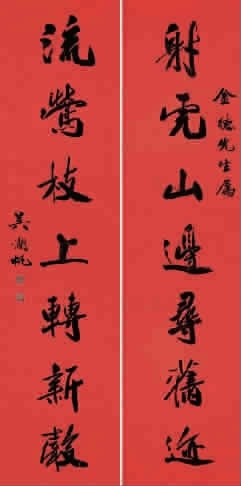 金德先生屬
射虎山邊尋舊迹
流鶯枝上轉新聲
吳湖帆